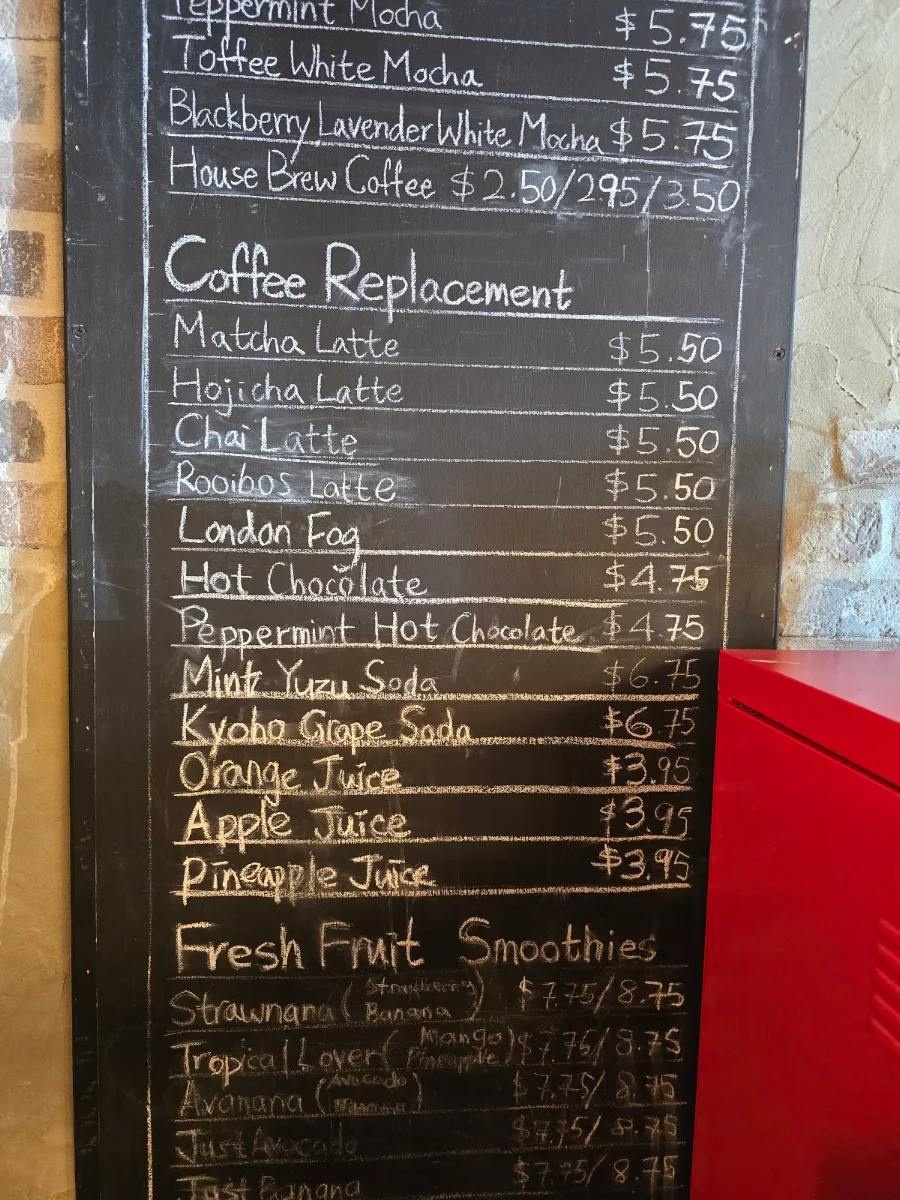 Peppermint Mocha $5.75
Toffee White Mocha $5.75
Blackberry Lavender White Mocha $5.75
House Brew Coffee $2.50/2.95/3.50
Coffee Replacement
Matcha Latte $5.50
Hojicha Latte $5.50
Chai Latte $5.50
Rooibos Latte $5.50
London Fog $5.50
Hot Chocolate $4.75
Peppermint Hot Chocolate $4.75
Mint Yuzu Soda $6.75
Kyoho Grape Soda $6.75
Orange Juice $3.95
Apple Juice $3.95
Pineapple Juice $3.95
Fresh Fruit Smoothies
Strawnana (Strawberry Banana) $7.75/8.75
Tropical Lover (Mango Pineapple) $7.75/8.75
Avanana (Avocado Banana) $7.75/8.75
Just Avocado $7.75/8.75
Just Banana $7.75/8.75